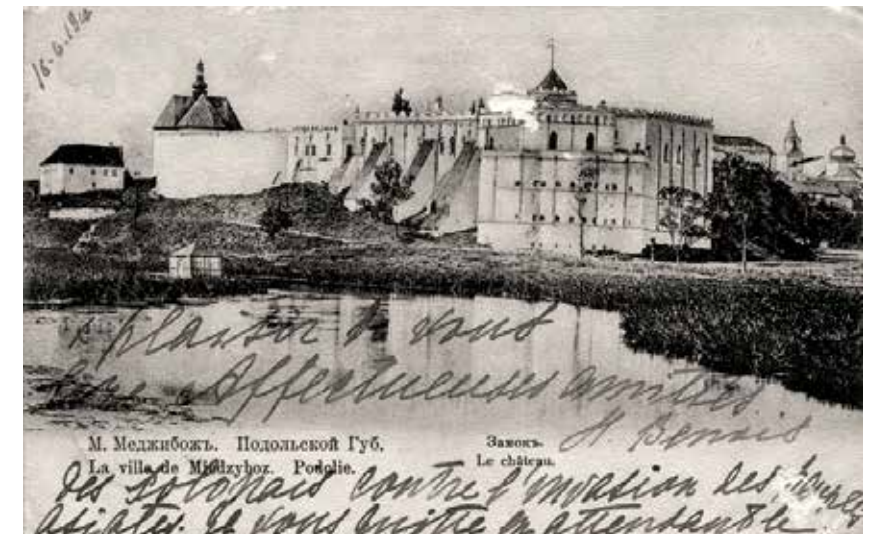 plaisir de vous
Affectueuses amitiés
H. Benois
М. Меджибожъ. Подольской Губ.
Замокъ.
La ville de Miedzyboz. Podolie.
Le château.
des Polonais contre l'invasion des
asiates. Je vous quitte en attendant le